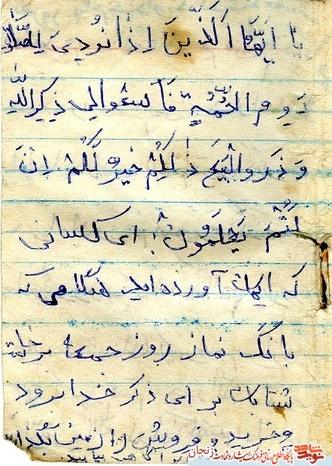 یا ایهّا الَذّینَ اِذا نُودیَ لِلصَّلوٰ
یَومِ الجُمعِهِ فَاسعَوا اِلی ذِکرِاللّهِ
وَ ذَروالْبَیعَ ذٰلِکُمْ خَیرٌ لَکُمْ اِنَ
کُنتُم تَعلَمُونَ؛ ای کسانی
که ایمان آورده‌اید هنگامی که
بانگ نماز روز جمعه برخاست
شتابان برای ذکر خدا برود
و خرید و فروش را زمین بگذا